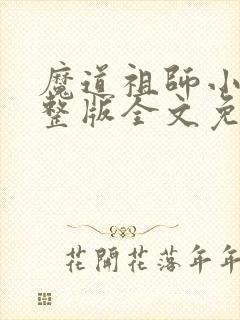 魔道祖師小
整版全文免
花開花落年年